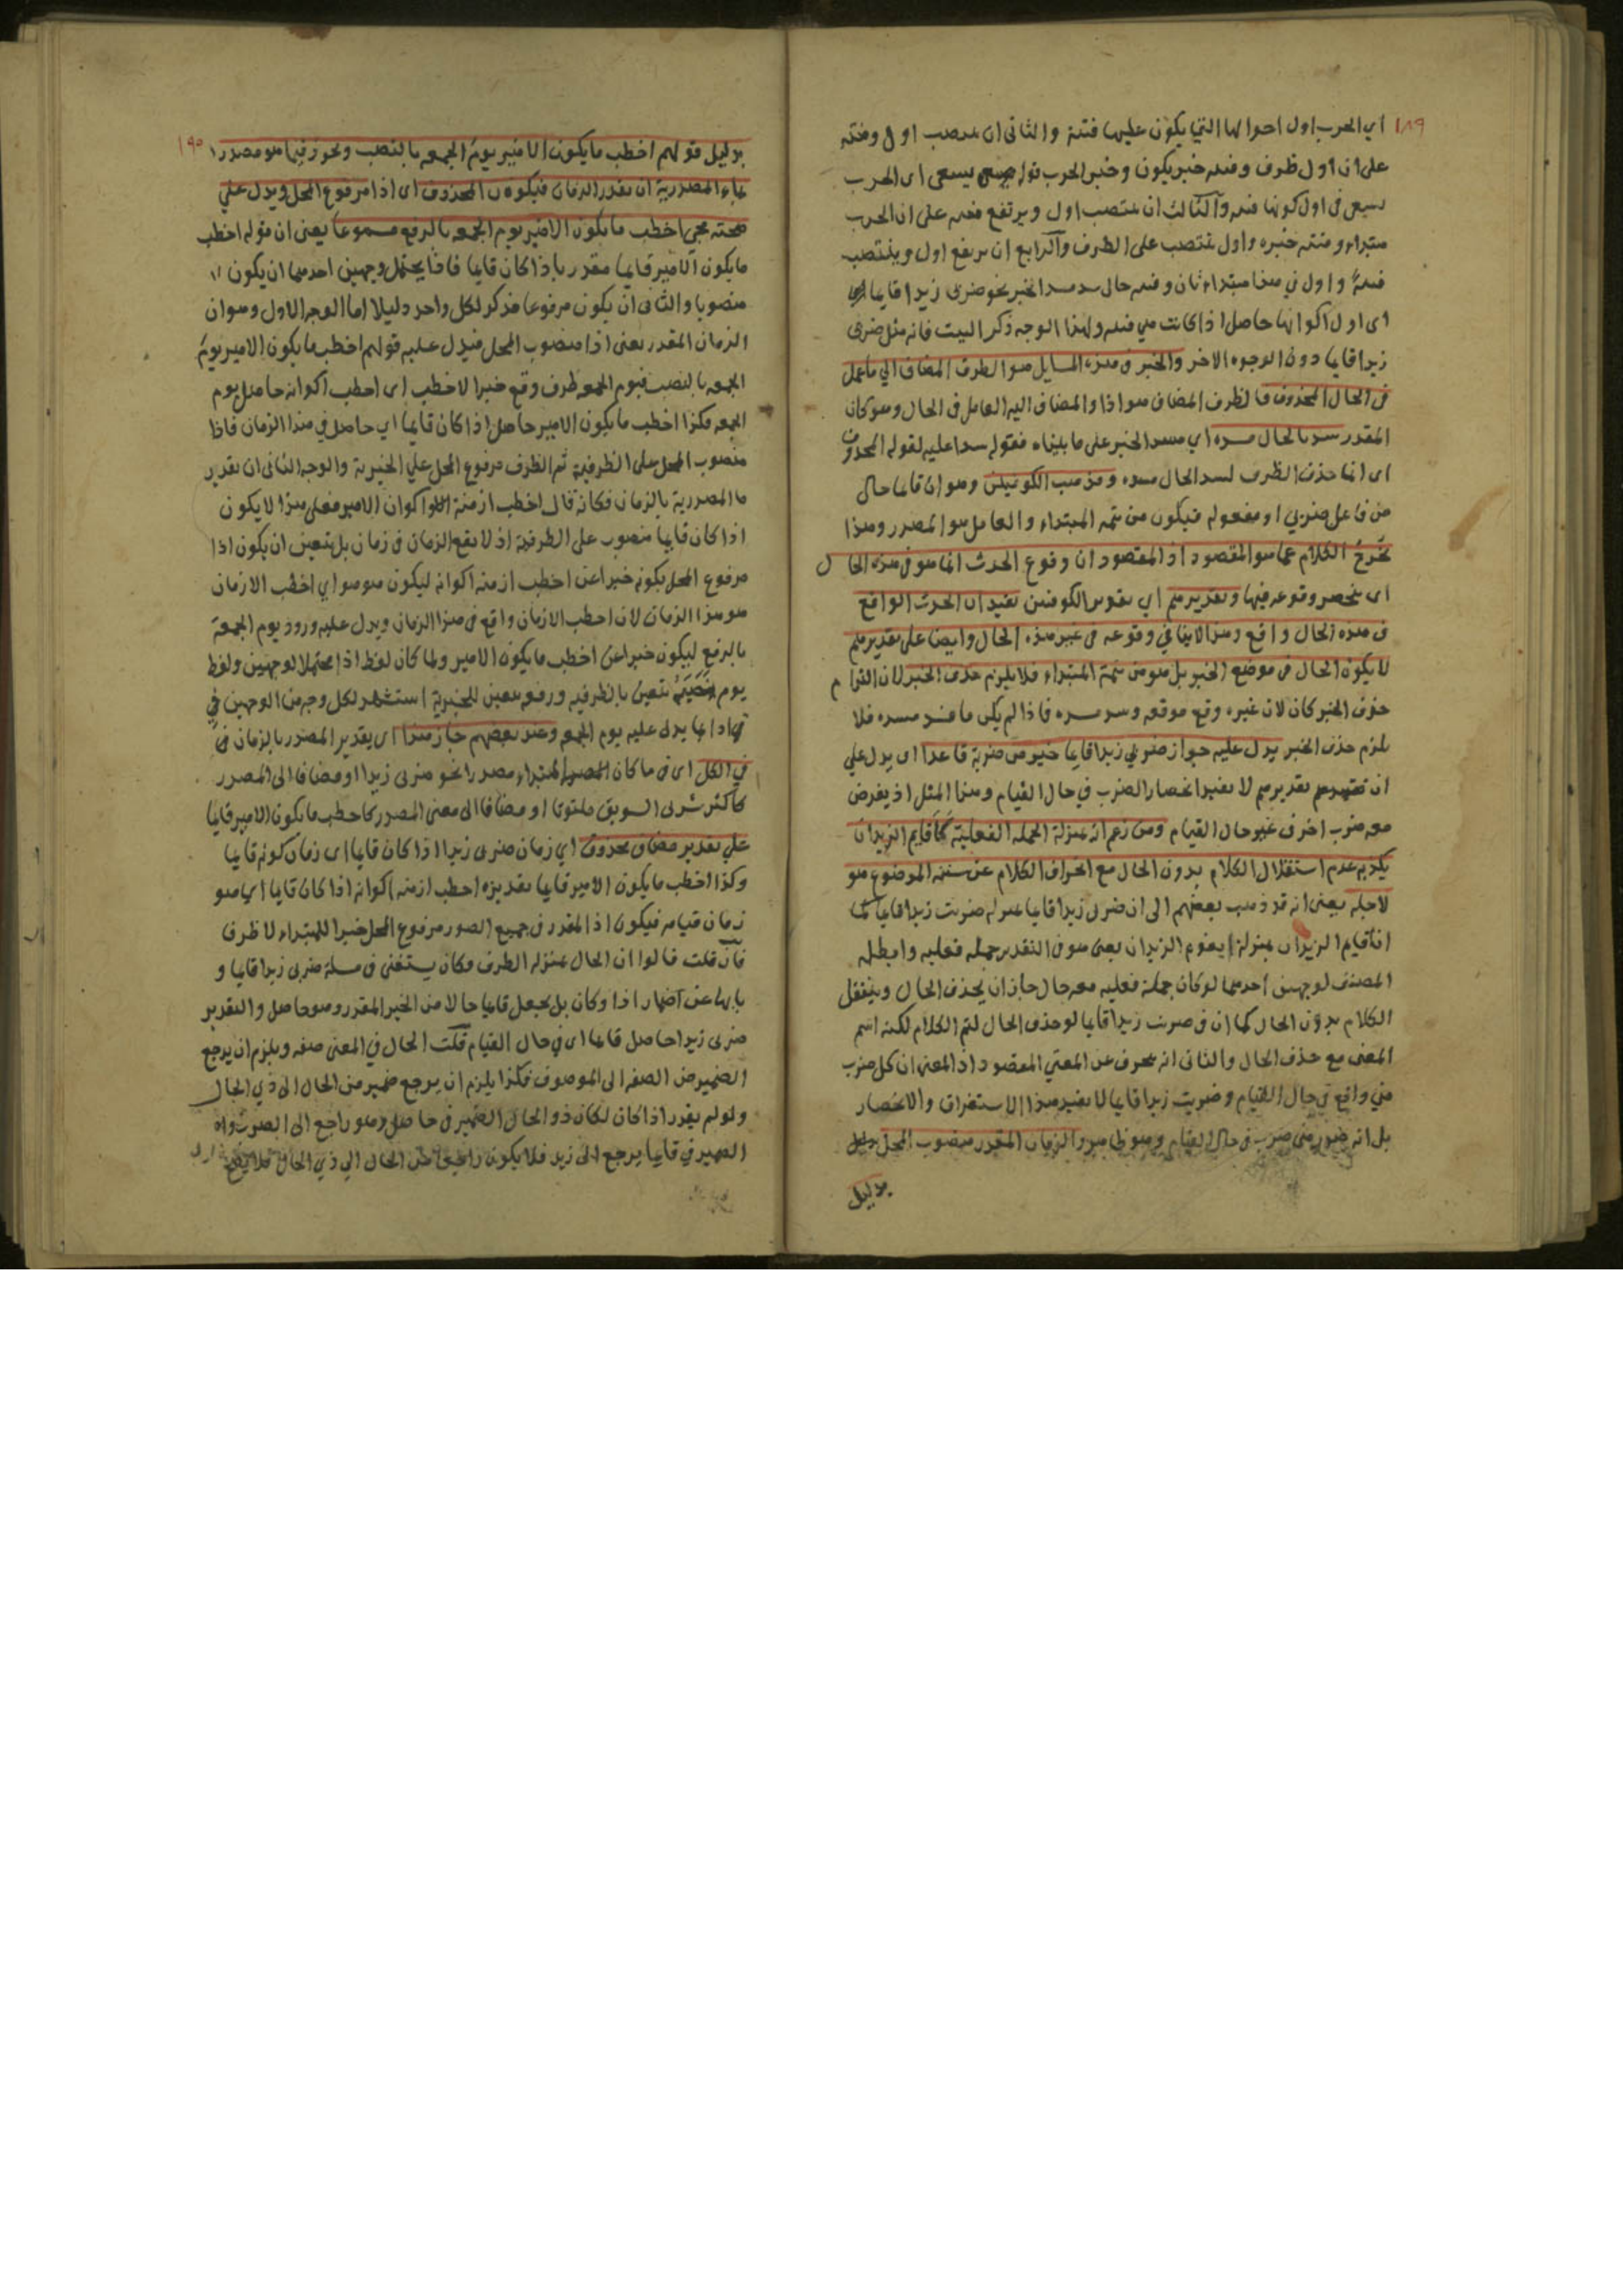 ١٨٩
اي الحرب اول احوالها التي يكون عليها فتنة والثاني ان ينصب اول وفتنة
على ان اول ظرف وفتنة خبر يكون وخبر الحرب قوله يسعى اى الحرب
يسعى فى اول كونها فتنة والثالث ان ينتصب اول ويرتفع فتنة على ان الحرب
مبتداء وفتنة خبره واول ينتصب على الظرف والرابع ان يرفع اول وينتصب
فتنةً واول في هذا مبتداء ثان وفتنة حال سد مسد الخبر نحو ضربى زيدا قايما
اى اول اكوانها حاصل اذا كانت هي فتنة ولهذا الوجه ذكر البيت فانه مثل ضربى
زيدا قايما دون الوجوه الاخر والخبر فى هذه المسايل هو الظرف المضاف الي ما عمل
فى الحال المحذوف فالظرف المضاف هو اذا والمضاف اليه العامل فى الحال وهو كان
المقدر سد بالحال مسده اي مسد الخبر على ما بيناه فقوله سدا عليه لقوله المحذوف
اى انما حذف الظرف لسد الحال مسده ومذهب الكوفيين وهو ان قايما حال
من فاعل ضربي او مفعوله فيكون من تتمه المبتداء والعامل هو المصدر وهذا
يخرج الكلام عما هو المقصود اذ المقصود ان وقوع الحدث انما هو فى هذه الحال
اى ينحصر وقوعه فيها وتقديرهم اي تقدير الكوفيين تفيد ان الحدث الواقع
فى هذه الحال واقع وهذا لا ينافي وقوعه فى غير هذه الحال وايضا على تقديرهم
لا يكون الحال فى موضع الخبر بل هو من تتمة المبتداء فلا يلزم حذف الخبر لان التزام
حذف الخبر كان لان غيره وقع موقعه وسد مسده فاذا لم يكن ما يسد مسده فلا
يلزم حذف الخبر يدل عليه جواز ضربي زيدا قايما خير من ضربة قاعدا اى يدل علي
ان تقديرهم لا يفيد انحصار الضرب في حال القيام وهذا المثل اذ يفرض
معه ضرب اخر فى غير حال القيام ومن زعم انه بمنزلة الجملة الفعلية كاقايم الزيدان
يكذبه عدم استقلال الكلام بدون الحال مع انحراف الكلام عن سننه الموضوع هو
لاجله يعنى انه قد ذهب بعضهم الى ان ضربى زيدا قايما بمنزلة ضربت زيدا قايما كما
ان اقايم الزيدان بمنزلة ايقوم الزيدان يعنى هو فى التقدير جملة فعلية وابطله
المصنف لوجهين احدهما لو كان جملة فعلية معه حال جاز ان يحذف الحال ويستقل
الكلام بدون الحال كما ان فى ضربت زيدا قايما لو حذف الحال لتم الكلام لكنه
المعنى مع حذف الحال والثانى انه يحرف عن المعني المقصود اذ المعنى ان كل ضرب
مني واقع في حال القيام وضربت زيدا قايما لا يفيد هذا الاستغراق والانحصار
بل انه ضرب فى حال القيام وهو ظاهر والزمان المقدر منصوب المحل
بدليل
١٩٠
بدليل قولهم اخطب ما يكون الامير يومَ الجمعه بالنصب ونحو زفيما هو مصدر
بماء المصدرية ان يقدر الزمان فيكون المحذوف اى اذا مرفوع المحل ويدل علي
صحته مجي اخطب ما يكون الامير يوم الجمعه بالرفع مسموعا يعنى ان قوله اخطب
ما يكون الامير قايما مقدر باذا كان قايما فاذا يحتمل وجهين احدهما ان يكون
منصوبا والثانى ان يكون مرفوعا فذكر لكل واحد دليلا اما الوجه الاول وهو ان
الزمان المقدر يعنى اذا منصوب المحل فيدل عليه قولهم اخطب ما يكون الامير يومَ
الجمعه بالنصب فيوم الجمعه ظرف وقع خبرا لاخطب اى اخطب اكوانه حاصل يوم
الجمعه فكذا اخطب ما يكون الامير حاصل اذا كان قايما اي حاصل في هذا الزمان فاذا
منصوب المحل على الظرفية ثم الظرف مرفوع المحل علي الخبرية والوجه الثانى ان تقدير
ما المصدرية بالزمان فكانه قال اخطب ازمنة اكوان الامير فعلى هذا لا يكون
اذا كان قايما منصوب على الظرفية اذ لا يقع الزمان فى زمان بل يتعين ان يكون اذا
مرفوع المحل بكونه خبرا عن اخطب ازمنه اكوانه ليكون هو هو اي اخطب الازمان
هو هذا الزمان لان اخطب الازمان واقع فى هذا الزمان ويدل عليه ورود يوم الجمعة
بالرفع ليكون خبرا عن اخطب ما يكون الامير ولما كان لفظ اذا محتملا لوجهين ولفظ
يوم نصبَه يتعين بالظرفيه ورفعه يتعين للخبرية استشهد لكل وجه من الوجهين في
اذا بما يدل عليه يوم الجمعه وعند بعضهم جاز هذا اى تقدير المصدر بالزمان
في الكل اى فى ما كان المبتداء مصدرا نحو ضربى زيدا او مضافا الى المصدر
كاكثر شربى السويق ملتوتا او مضافا الى معنى المصدر كاخطب ما يكون الامير قايما
علي تقدير مضاف محذوف اي زمان ضربى زيدا اذا كان قايما اى زمان كونه قايما
وكذا اخطب ما يكون الامير قايما تقديره اخطب ازمنه اكوانه اذا كان قايما اي هو
زمان قيامه فيكون اذا المقدر فى جميع الصور مرفوع المحل خبرا للمبتداء لا ظرفا
فان قلت قالوا ان الحال بمنزله الظرف وكان يستغنى فى مسلة ضربى زيدا قايما و
بابها عن اضمار اذا وكان بل يجعل قايما حالا من الخبر المقدر وهو حاصل والتقدير
ضربى زيدا حاصل قايما اى في حال القيام قلت الحال في المعنى صفه ويلزم ان يرجع
الضمير من الصفه الى الموصوف فكذا يلزم ان يرجع ضمير من الحال الى ذي الحال
ولو لم يقدر اذا كان لكان ذو الحال الضمير فى حاصل وهو راجع الى الضرب
الضمير في قايما يرجع الى زيد فلا يكون من الحال الي ذي الحال